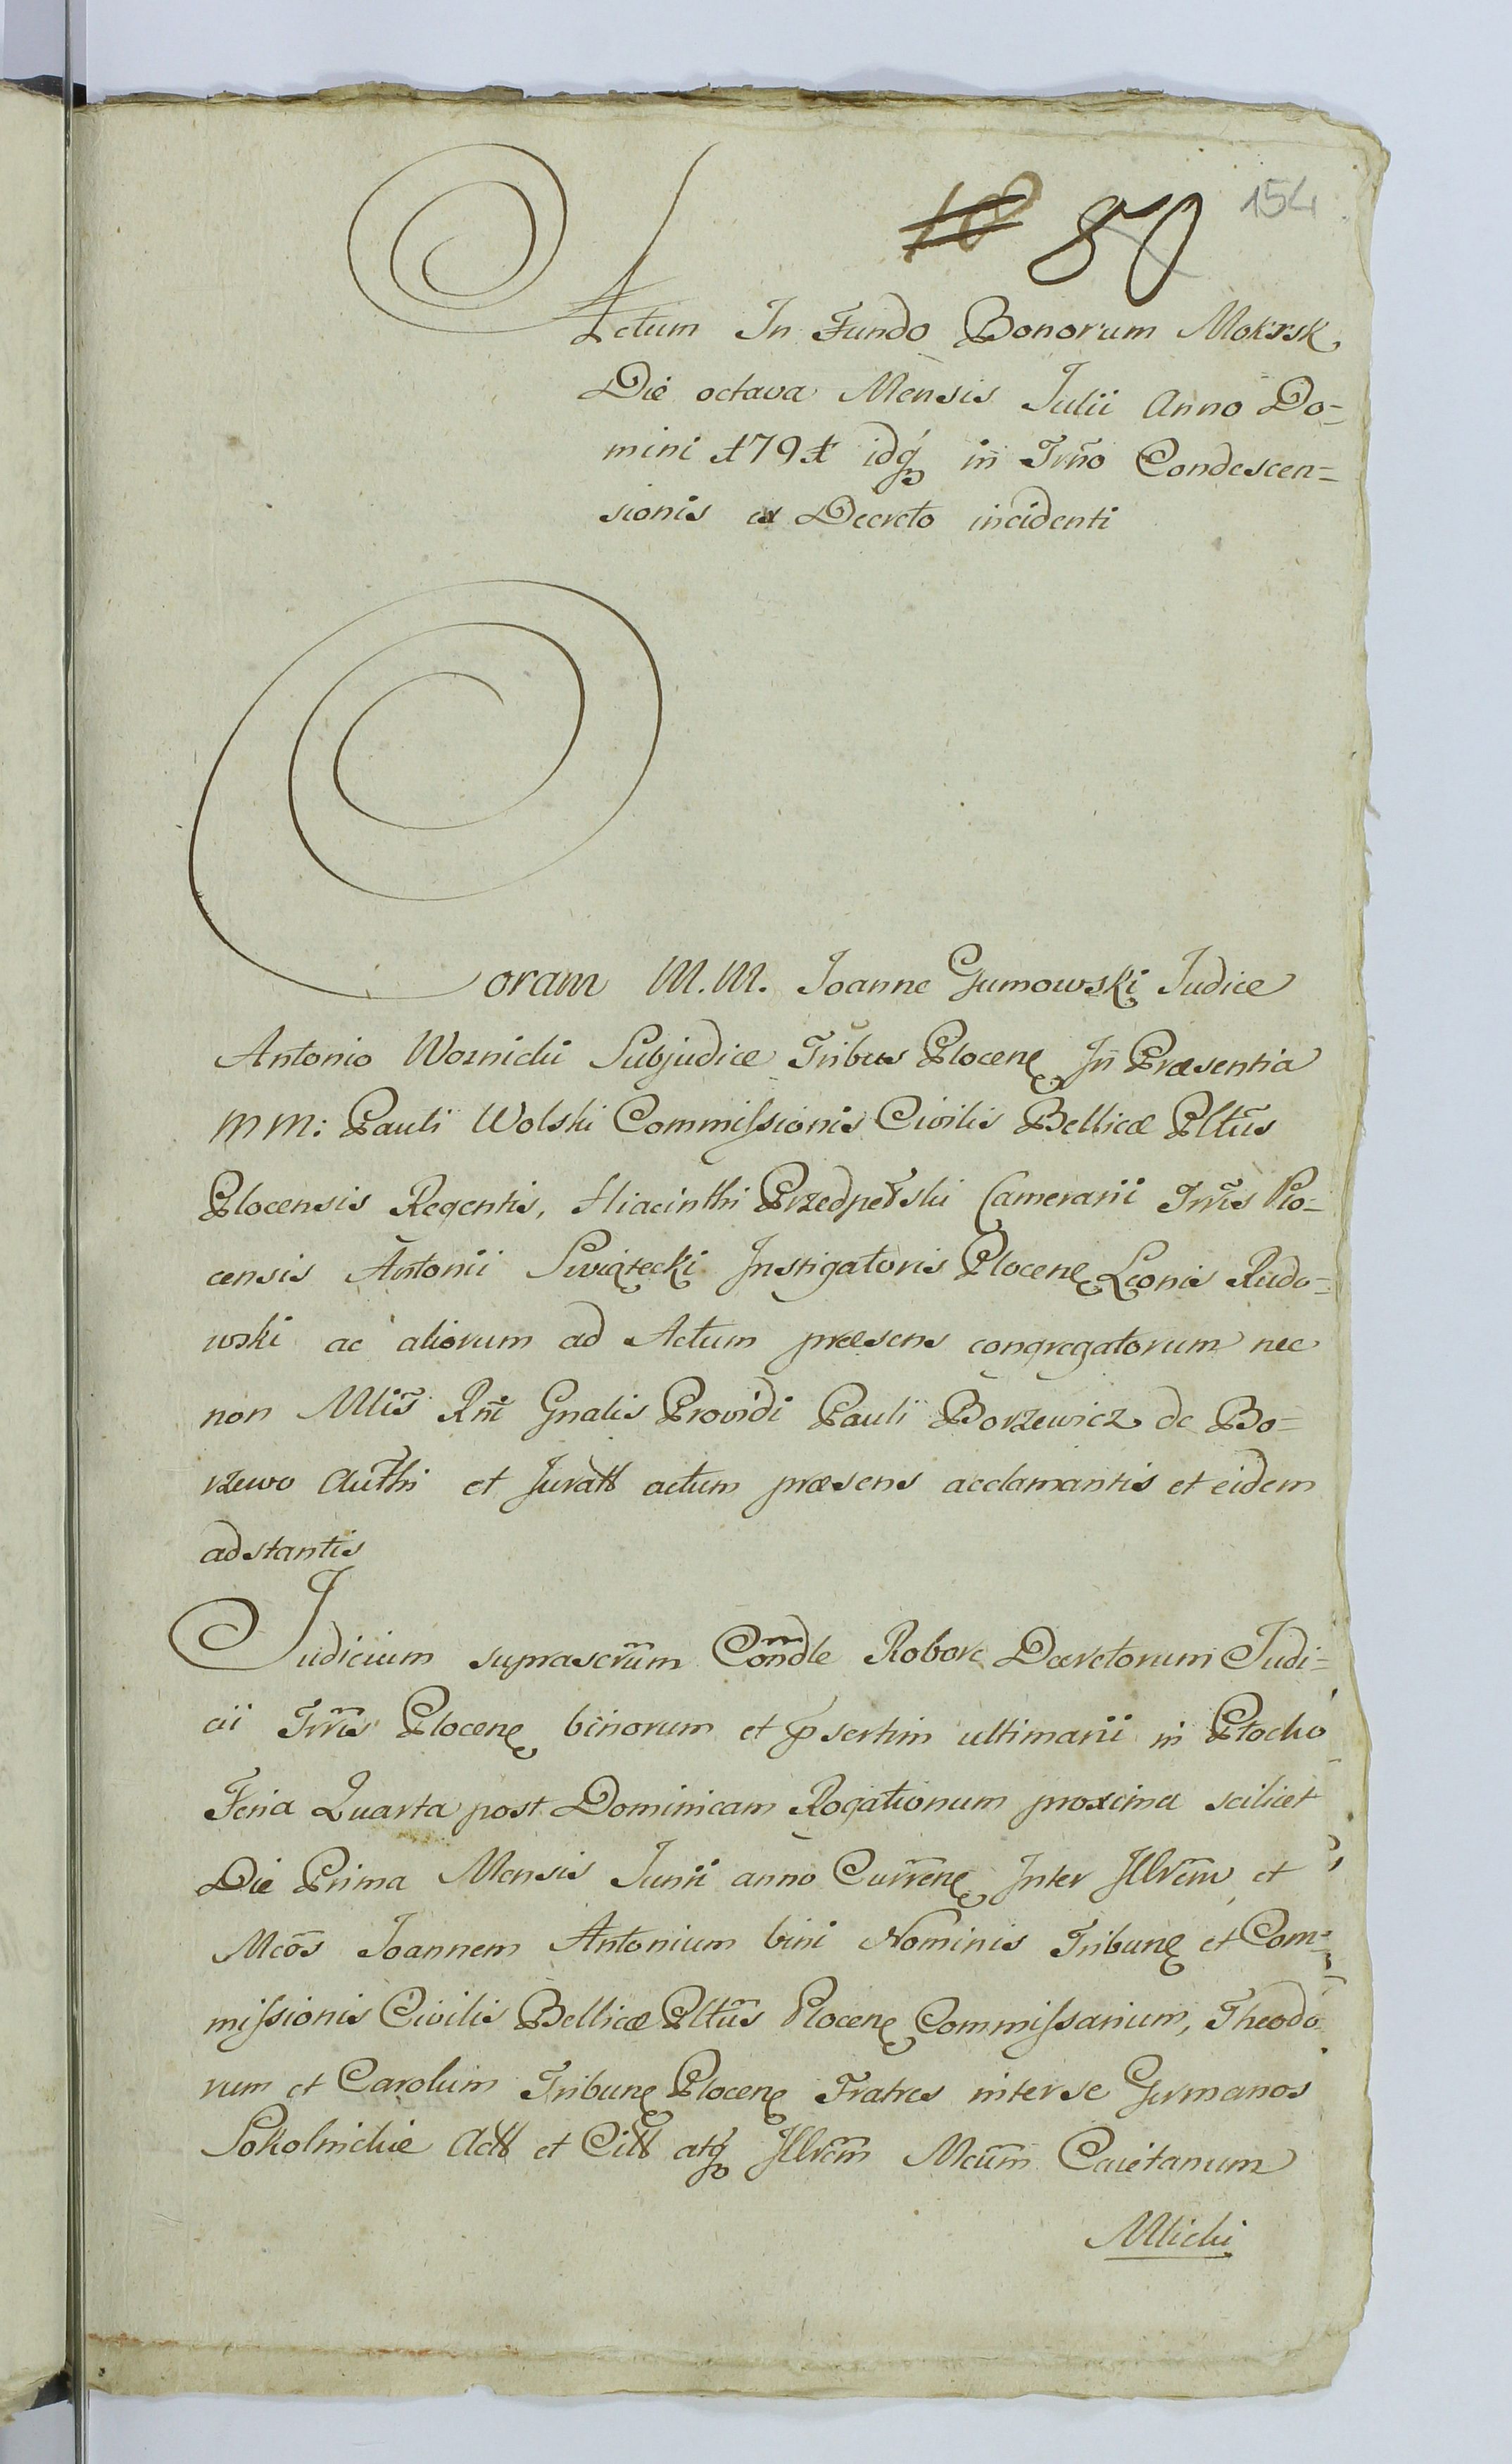 18 80 154
Actum In Fundo Bonorum Mokrsk
Die octava Mensis Julii Anno Do=
mini 1791 idq́ꝫ in Trño Condescen=
sionis ex Decreto incidenti
Coram M.M. Joanne Gumowski Judice
Antonio Woznicki Subjudice Tribus Plocenꝭ In Præsentia
MM: Pauli Wolski Commissionis Civilis Bellicæ Pltũs
Plocensis Regentis, Hiacinthi Przedpełski Camerarii Trr̃is Plo=
censis Antonii Swiątecki Instigatoris Plocenꝭ Leonis Rudo=
wski ac aliorum ad Actum præsens congregatorum nec
non Mlis̃ Rñi Gnalis Providi Pauli Borzewicz de Bo=
rzewo Auth̃i et Juratt actum præsens acclamantis et eidem
adstantis
Judicium suprascr̃um Coñdle Robore Decretorum Judi=
cii Trr̃is Plocenꝭ binorum et p̃sertim ultimarii in Płocko
Feria Quarta post Dominicam Rogationum proxima scilicet
Die Prima Mensis Junii anno Curr̃enꝭ Inter Illr̃em et
Mcõs Joannem Antonium bini Nominis Tribunꝭ et Com=
missionis Civilis Bellicæ Pltũs Plocenꝭ Commissarium, Theodo
rum et Carolum Tribunꝭ Plocenꝭ Fratres inter se Germanos
Sokolnickie Actt et Citt atq́ꝫ Illr̃em Mcũm Caietanum
Mlicki